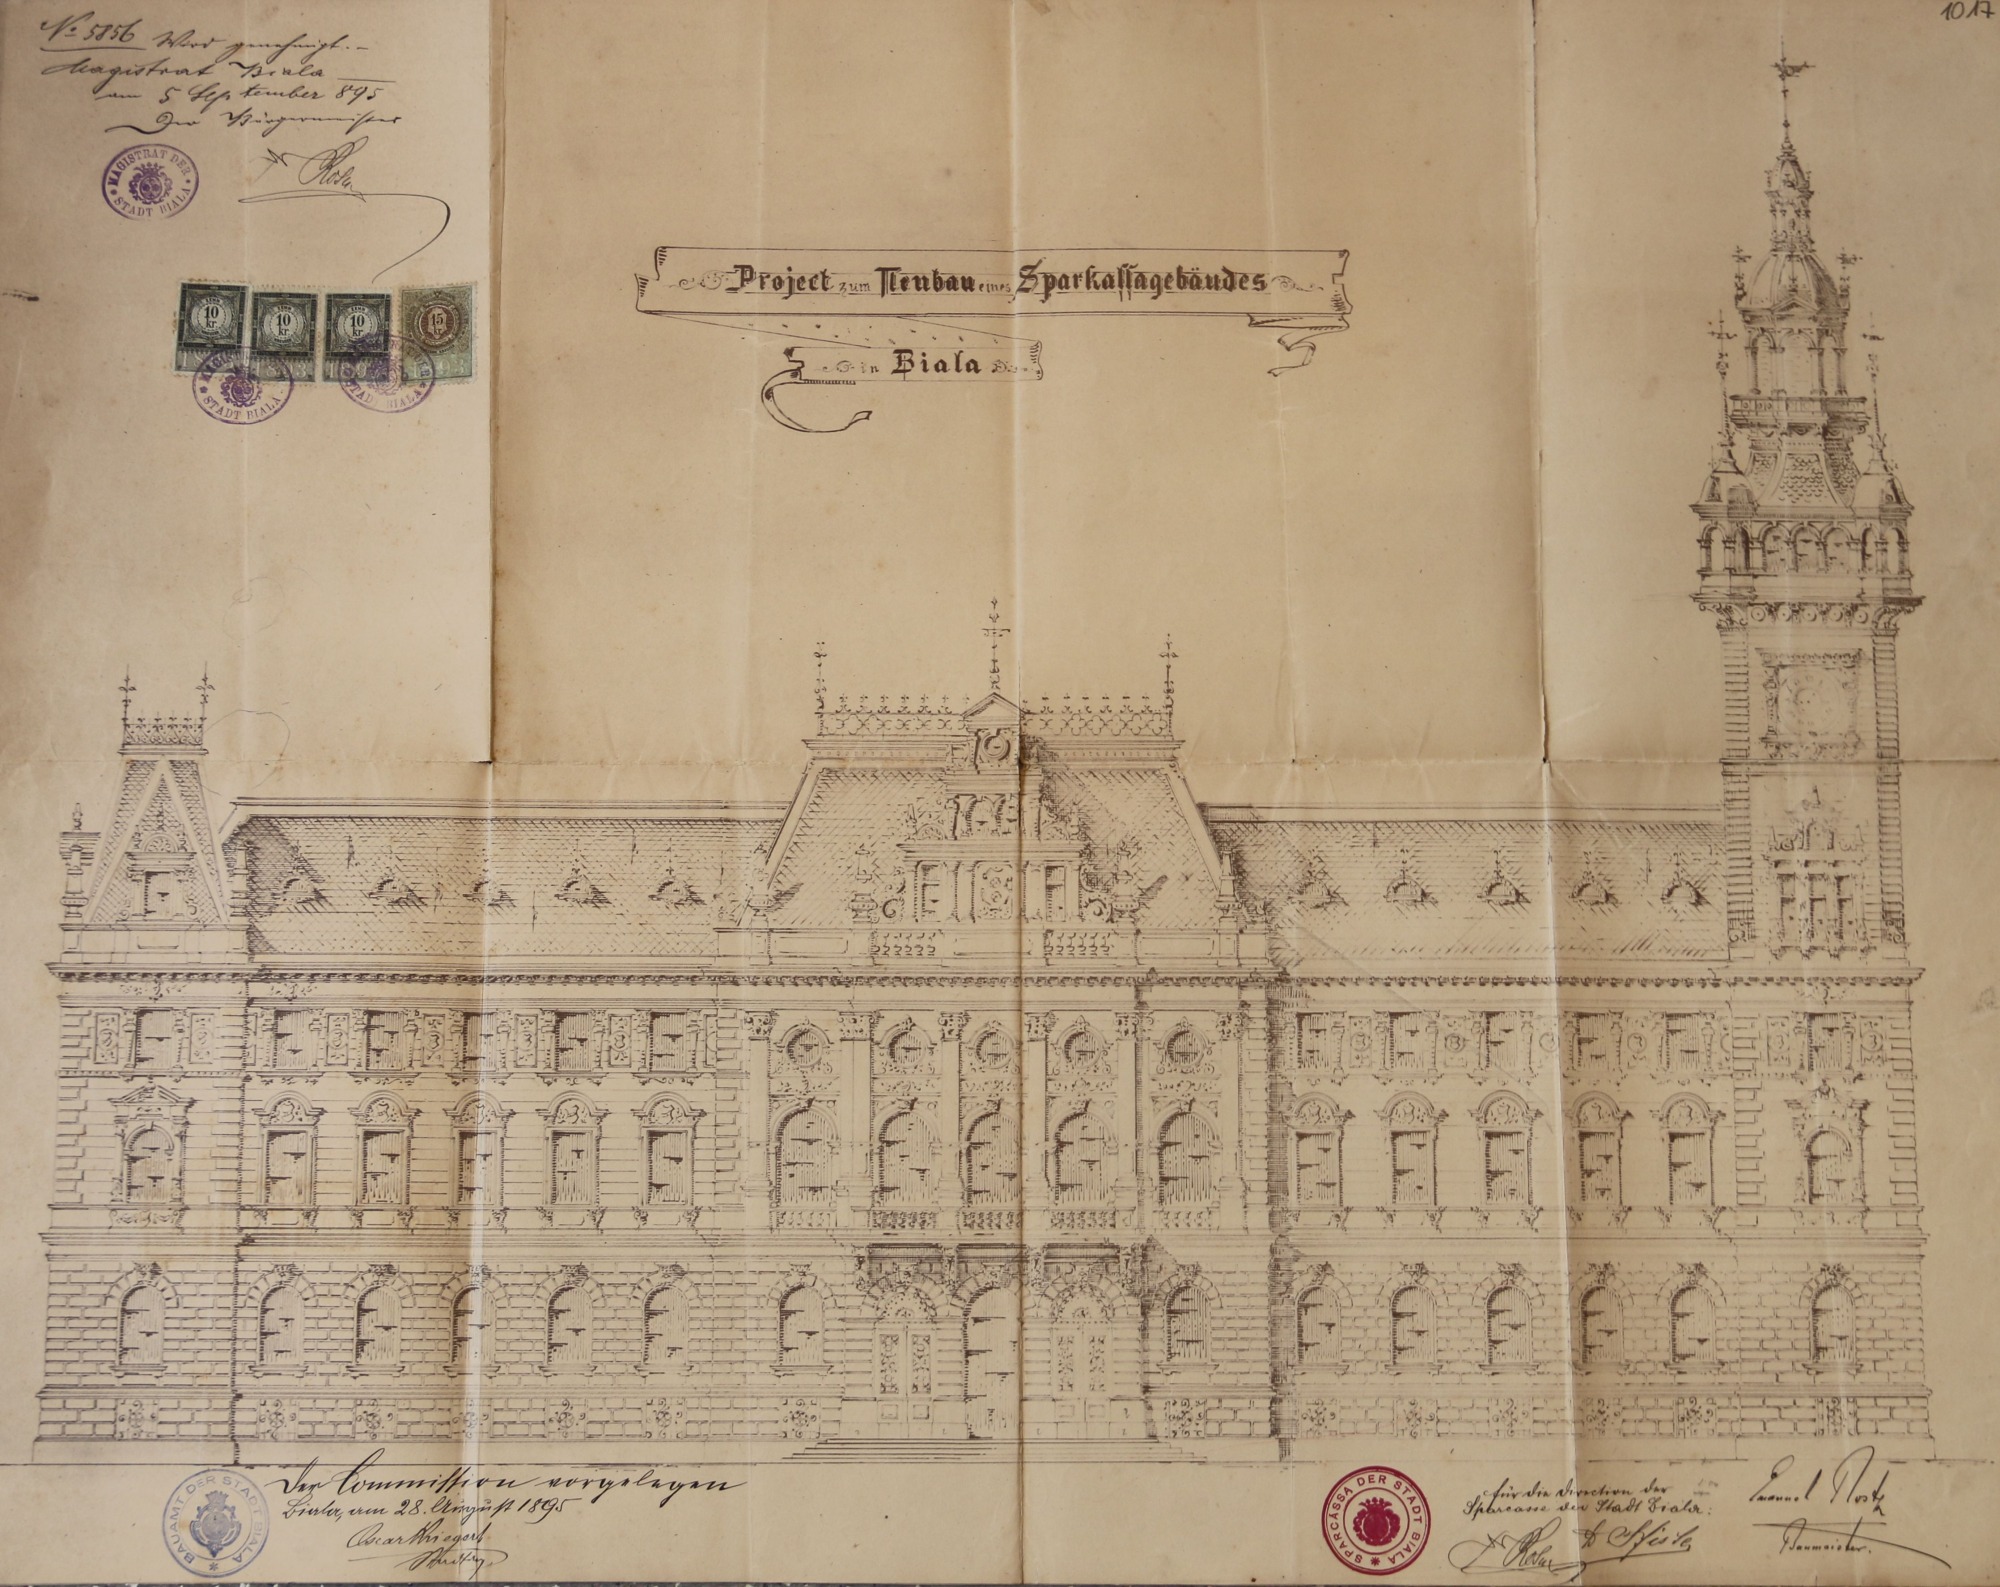 1017
No 5856 Wird genehmigt.-
Magistrat Biala
am 5 September 895
Der Bürgermeister
Dr Rosner
MAGISTRAT DER STADT BIALA
10 kr.
10 kr.
10 kr.
15 kr.
MAGISTRAT DER STADT BIALA
STADT BIALA
Project zum Neubau eines Sparkassagebäudes
in Biala
BAUAMT DER STADT BIALA
Der Commission vorgelegen
Biala, am 28. August 1895
Oscar Kriegort
SPARCASSA DER STADT BIALA
für die Direction der
Sparcasse der Stadt Biala:
Dr Rosner
Emanuel Rost
Baumeister.